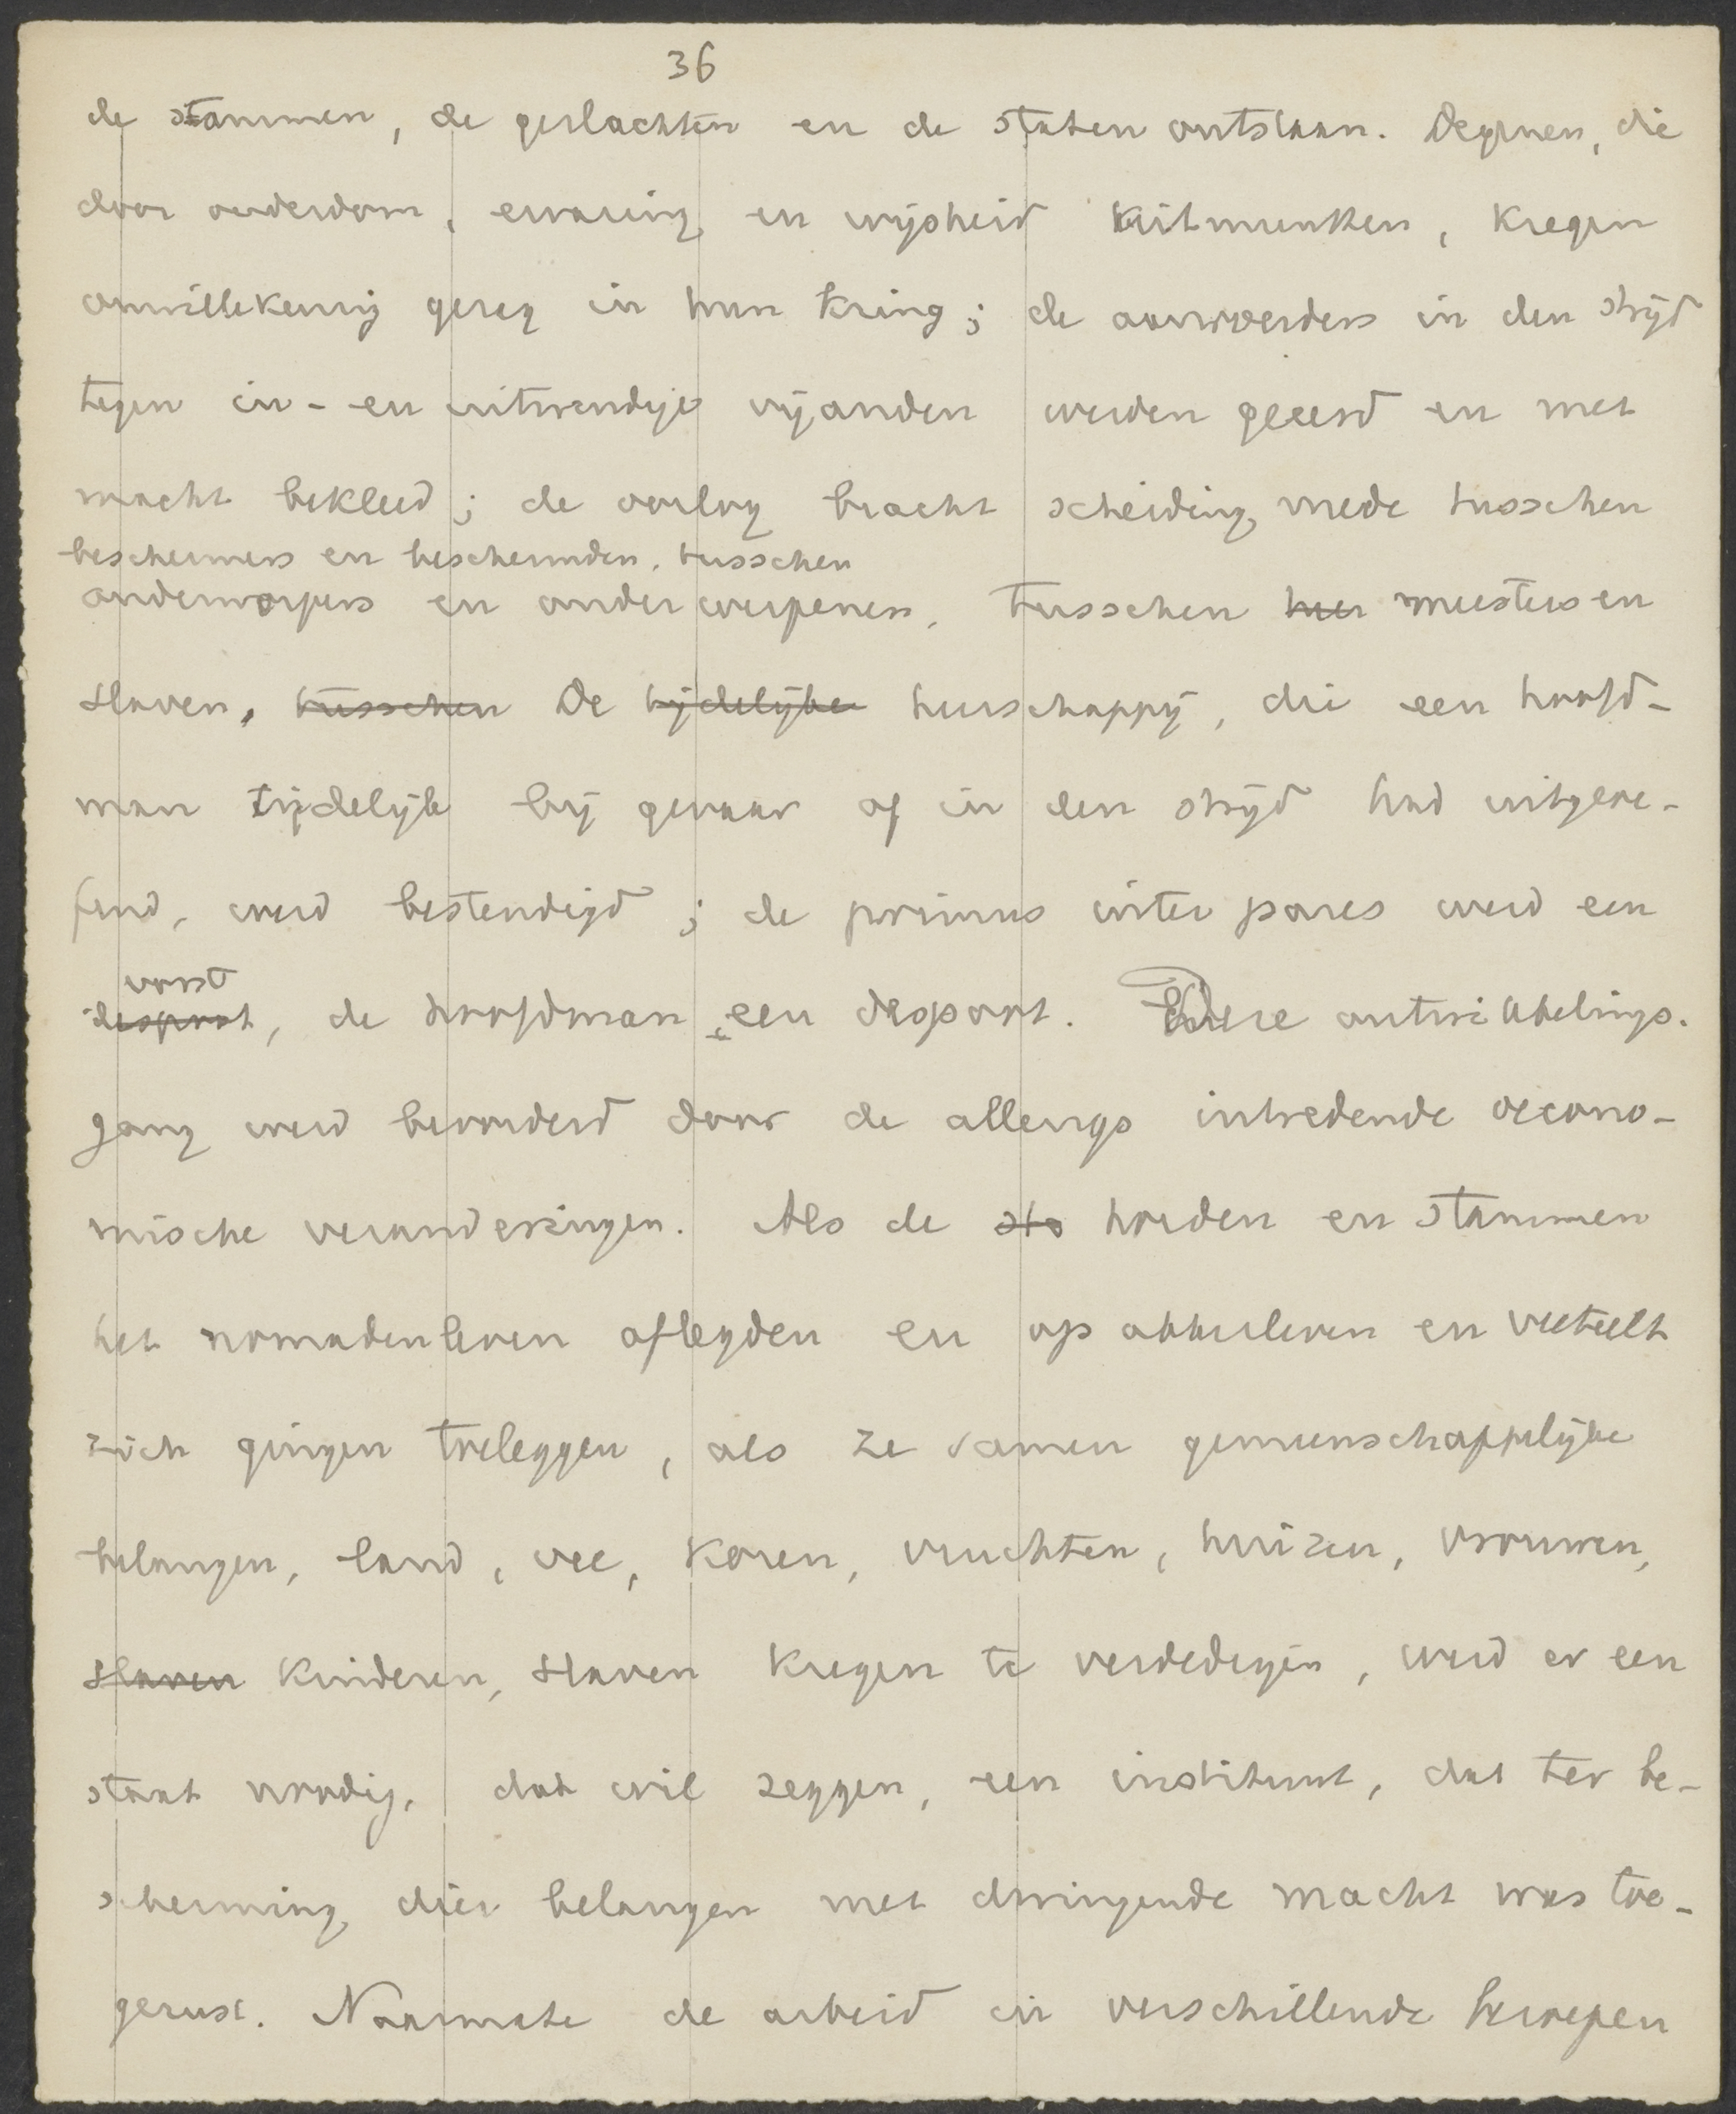 36
de stammen, de geslachten en de staten ontstaan. Degenen, die
door ouderdom, ervaring en wijsheid uitmunten, kregen
onwillekeurig gezag in hun kring; de aanvoerders in den strijd
tegen in- en uitwendige vijanden werden geëerd en met
macht bekleed; de oorlog bracht scheiding mede tusschen
beschermers en beschermden, tusschen
onderworpers en onderworpenen, tusschen her meesters en
slaven, tusschen De tijdelijke heerschappij, die een hoofd-
man tijdelijk bij gevaar of in den strijd had uitgeoe-
fend, werd bestendigd; de primus inter pares werd een
vorst
despoot, de hoofdman een despoot. Deze ontwikkelings-
gang werd bevorderd door de allengs intredende oecono-
mische veranderingen. Als de sta horden en stammen
het nomadenleven aflegden en op akkerleven en veeteelt
zich gingen toeleggen, als ze samen gemeenschappelijke
belangen, land, vee, koren, vruchten, huizen, vrouwen,
slaven kinderen, slaven kregen te verdedigen, werd er een
staat noodig, dat wil zeggen, een instituut, dat ter be-
scherming dier belangen met dwingende macht was toe-
gerust. Naarmate de arbeid in verschillende beroepen